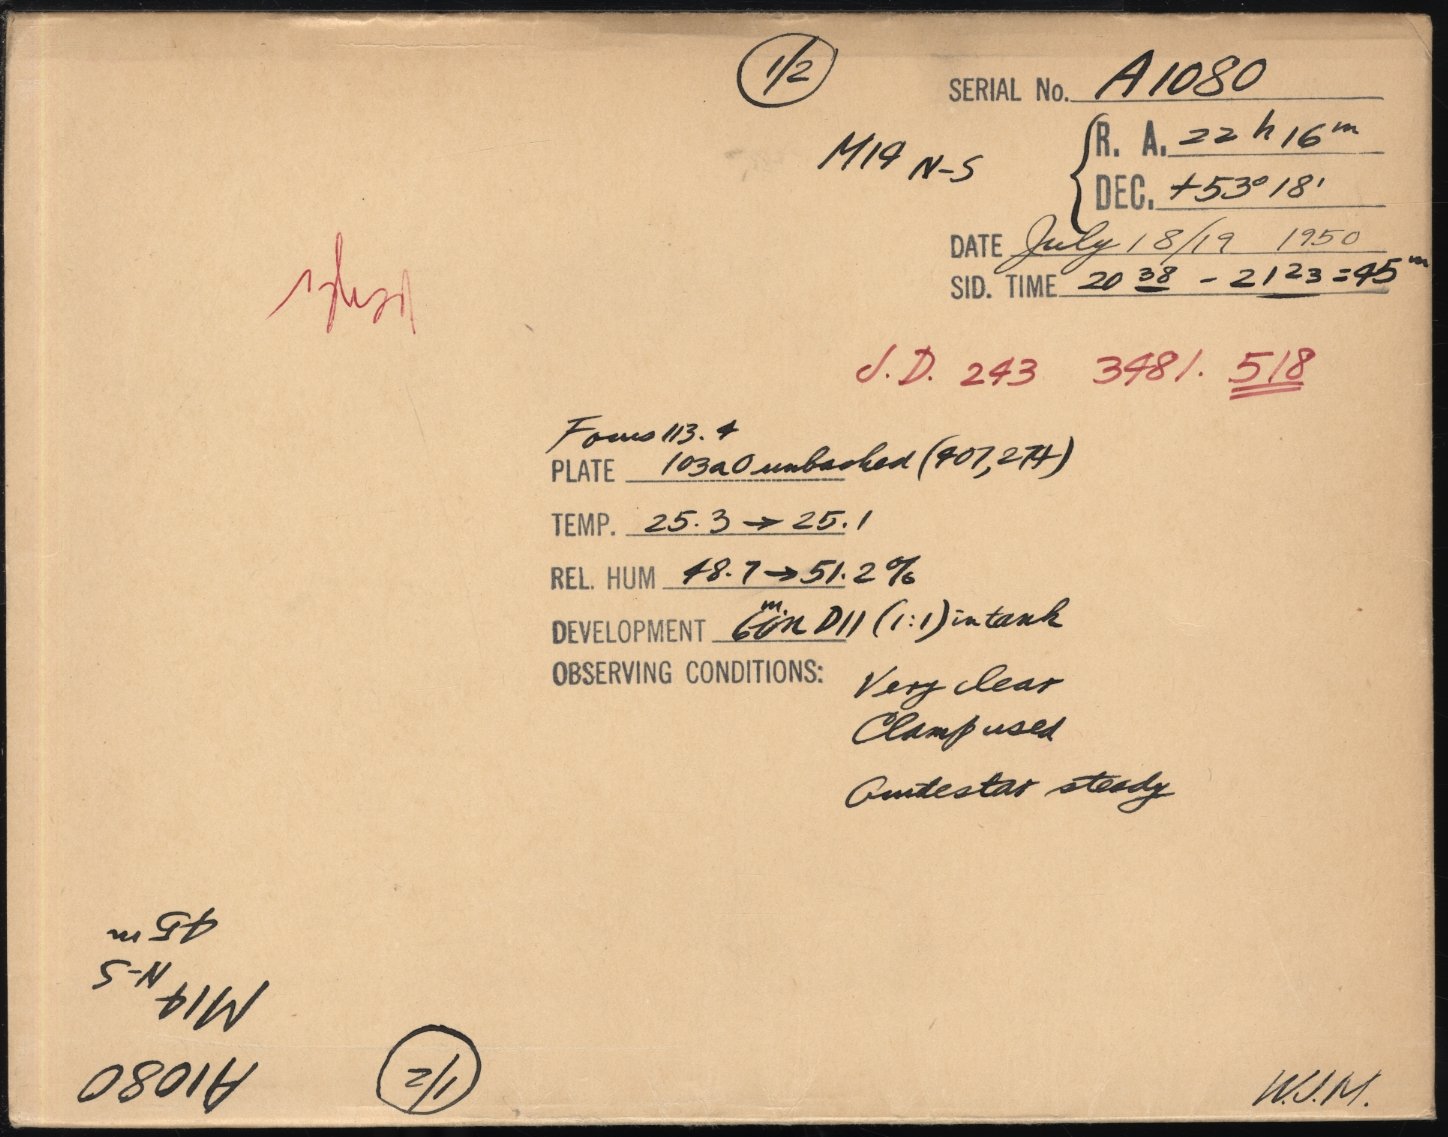 1/2
SERIAL No. A1080
M14 N-S
R. A. 22 h 16 m
DEC. +53° 18'
DATE July 18/19 1950
SID. TIME 20 38 - 21 23 = 45 m
J.D. 243 3481. 518
Focus 113.4
PLATE 103aO unbacked (407,274)
TEMP. 25.3 → 25.1
REL. HUM 48.7 → 51.2 %
DEVELOPMENT 6 m. in D11 (1:1) in tank
OBSERVING CONDITIONS:
Very clear
Clamp used
Guidestar steady
45 m
N-S
M14
A1080
1/2
W.J.M.